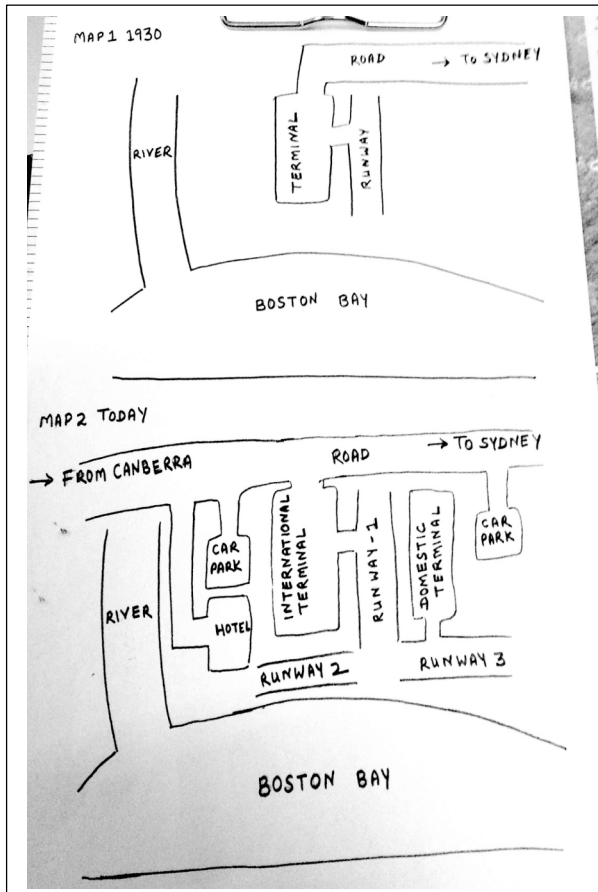 MAP 1 1930
ROAD → TO SYDNEY
RIVER
TERMINAL
RUNWAY
BOSTON BAY
MAP 2 TODAY
→ FROM CANBERRA
ROAD → TO SYDNEY
CAR
PARK
HOTEL
INTERNATIONAL
TERMINAL
RUNWAY-1
DOMESTIC
TERMINAL
CAR
PARK
RIVER
RUNWAY 2
RUNWAY 3
BOSTON BAY